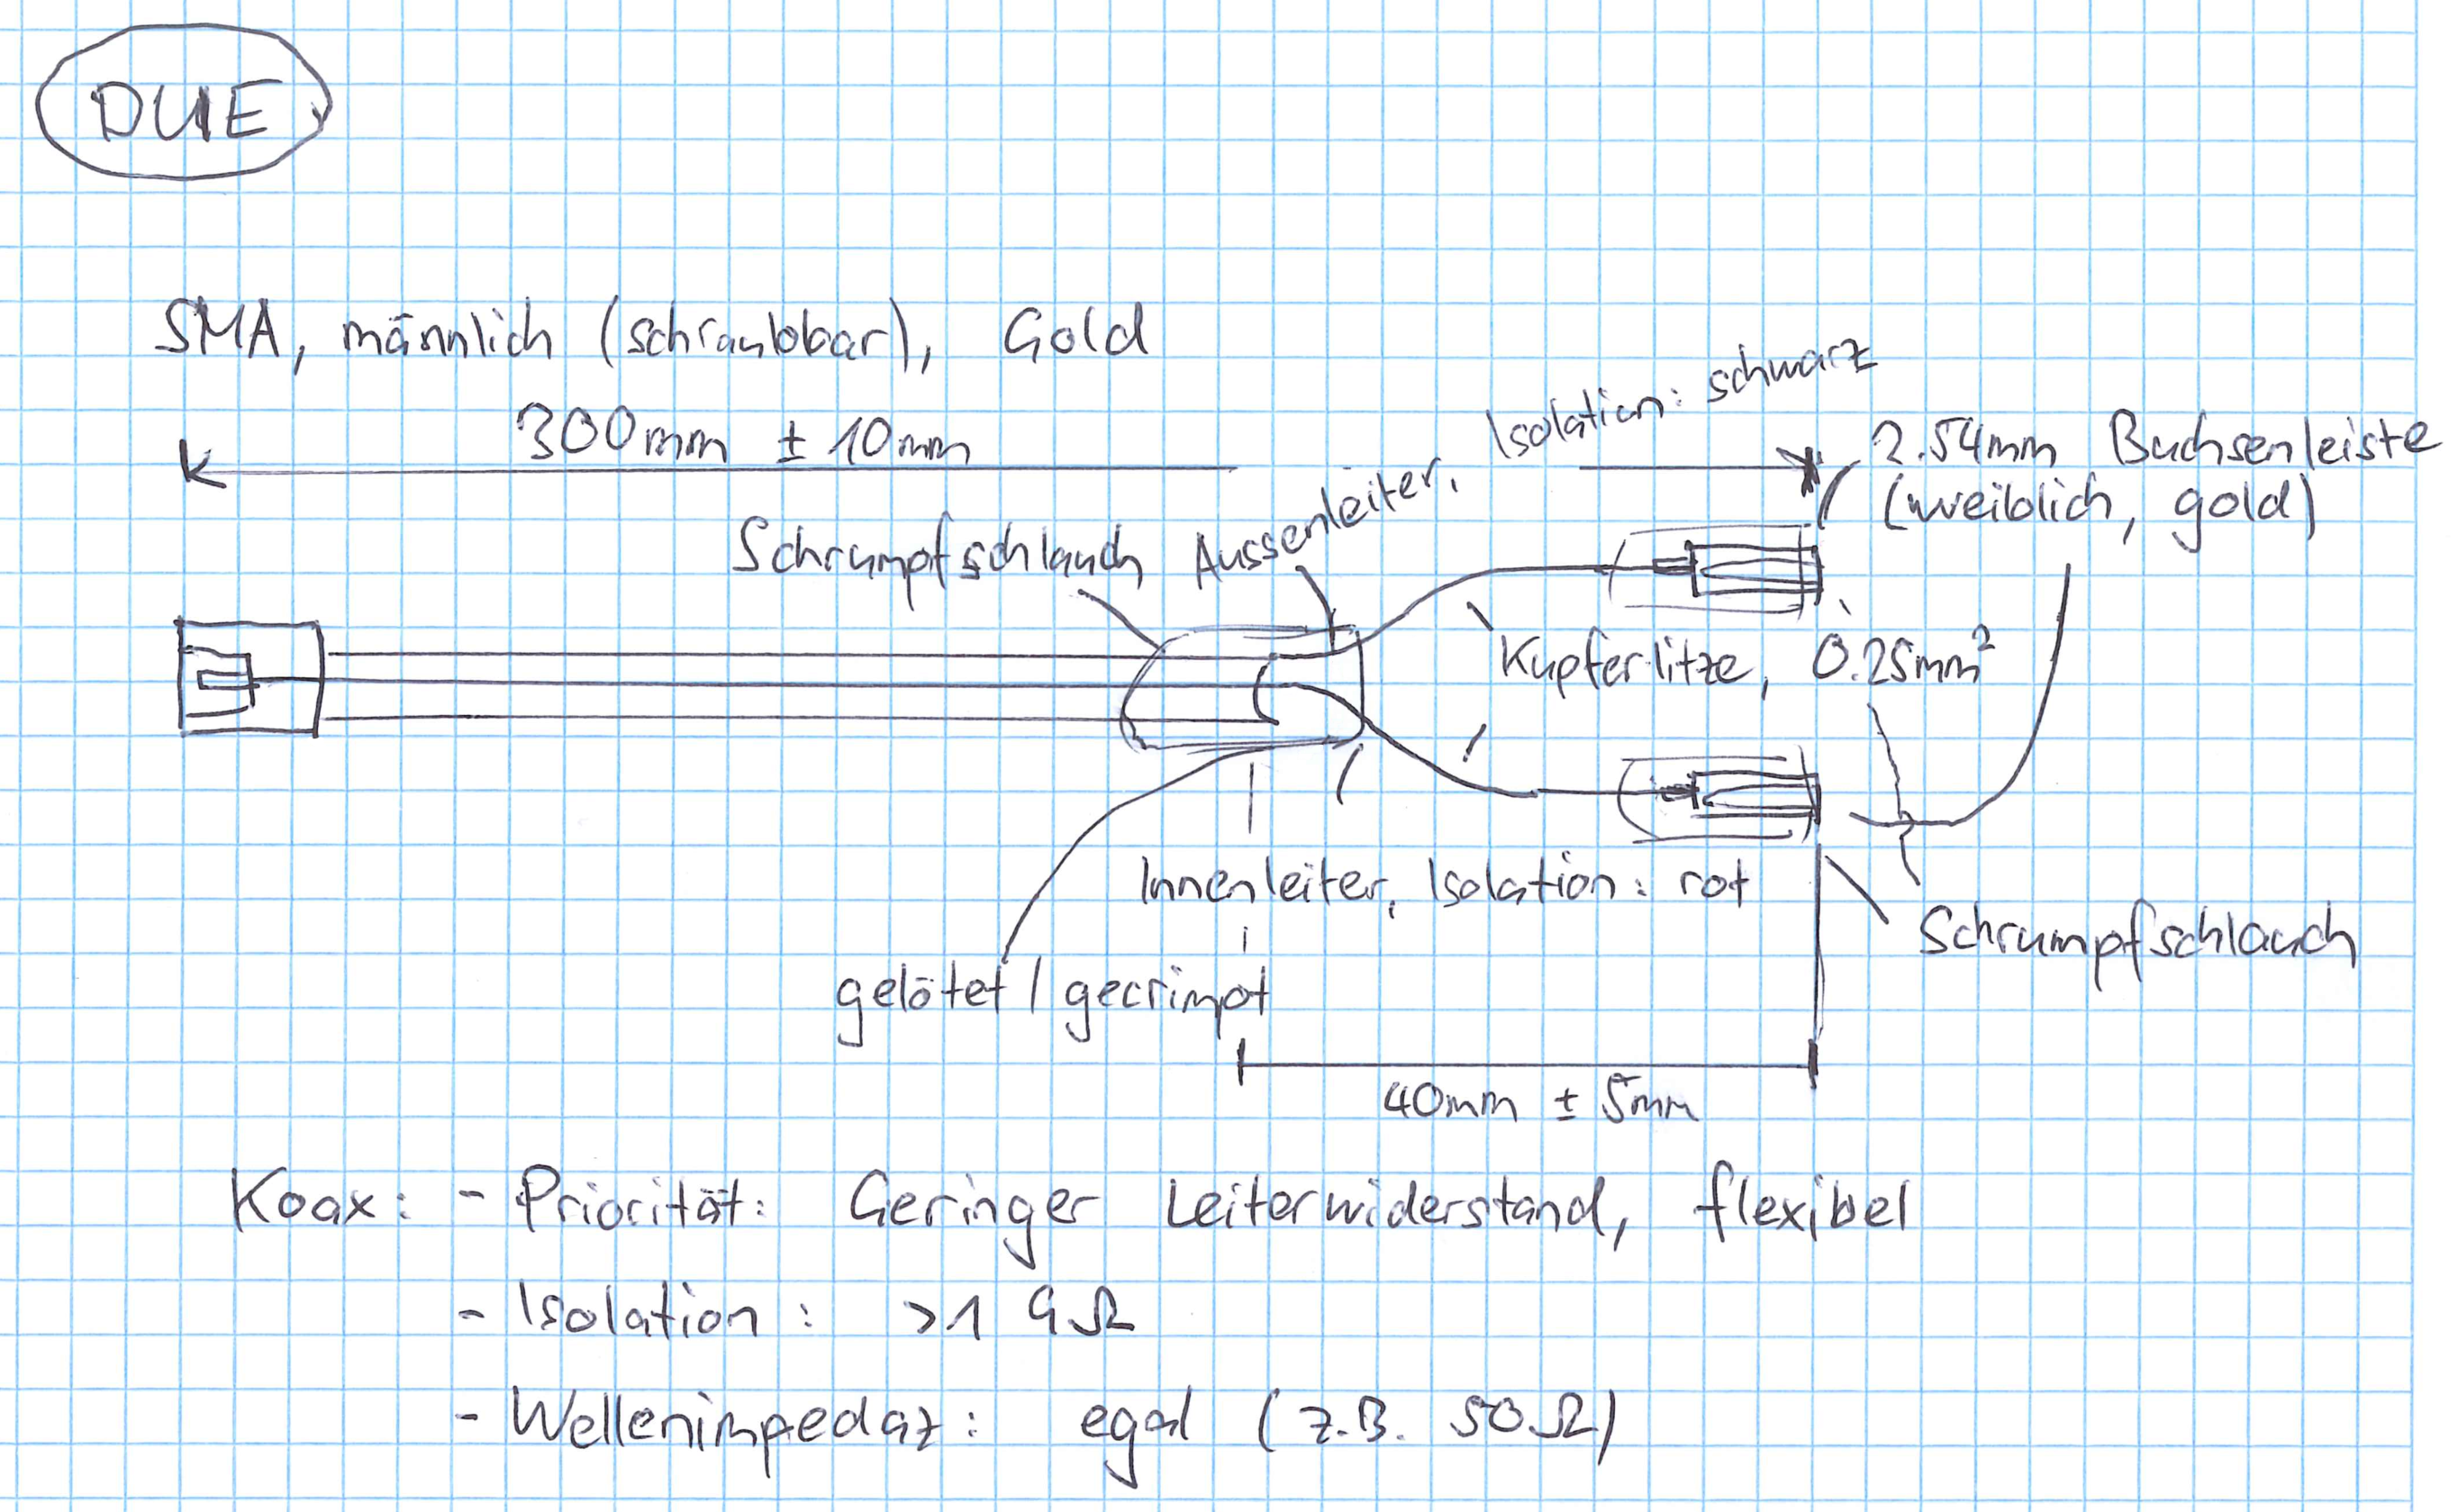 DUE
SMA, männlich (schraubbar), Gold
300mm ± 10mm
Isolation: schwarz
Aussenleiter,
2.54mm Buchsenleiste
(weiblich, gold)
Schrumpfschlauch
Kupferlitze, 0.25mm²
Innenleiter, Isolation: rot
Schrumpfschlauch
gelötet / gecrimpt
40mm ± 5mm
Koax: - Priorität: Geringer Leiterwiderstand, flexibel
- Isolation: >1 GΩ
- Wellenimpedaz: egal (z.B. 50Ω)